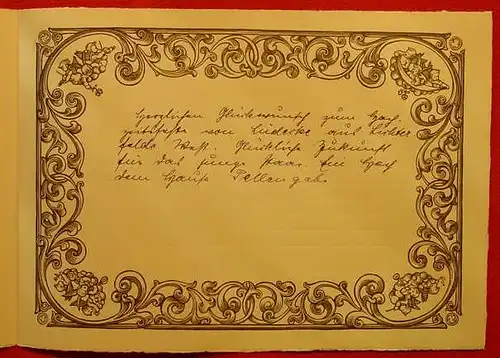 Herzlichen Glückwunsch zum Hoch-
zeitsfeste von Lüdecke aus Lichter
felde West. Glückliche Zukunft
für das junge Paar. Ein Hoch
dem Hause